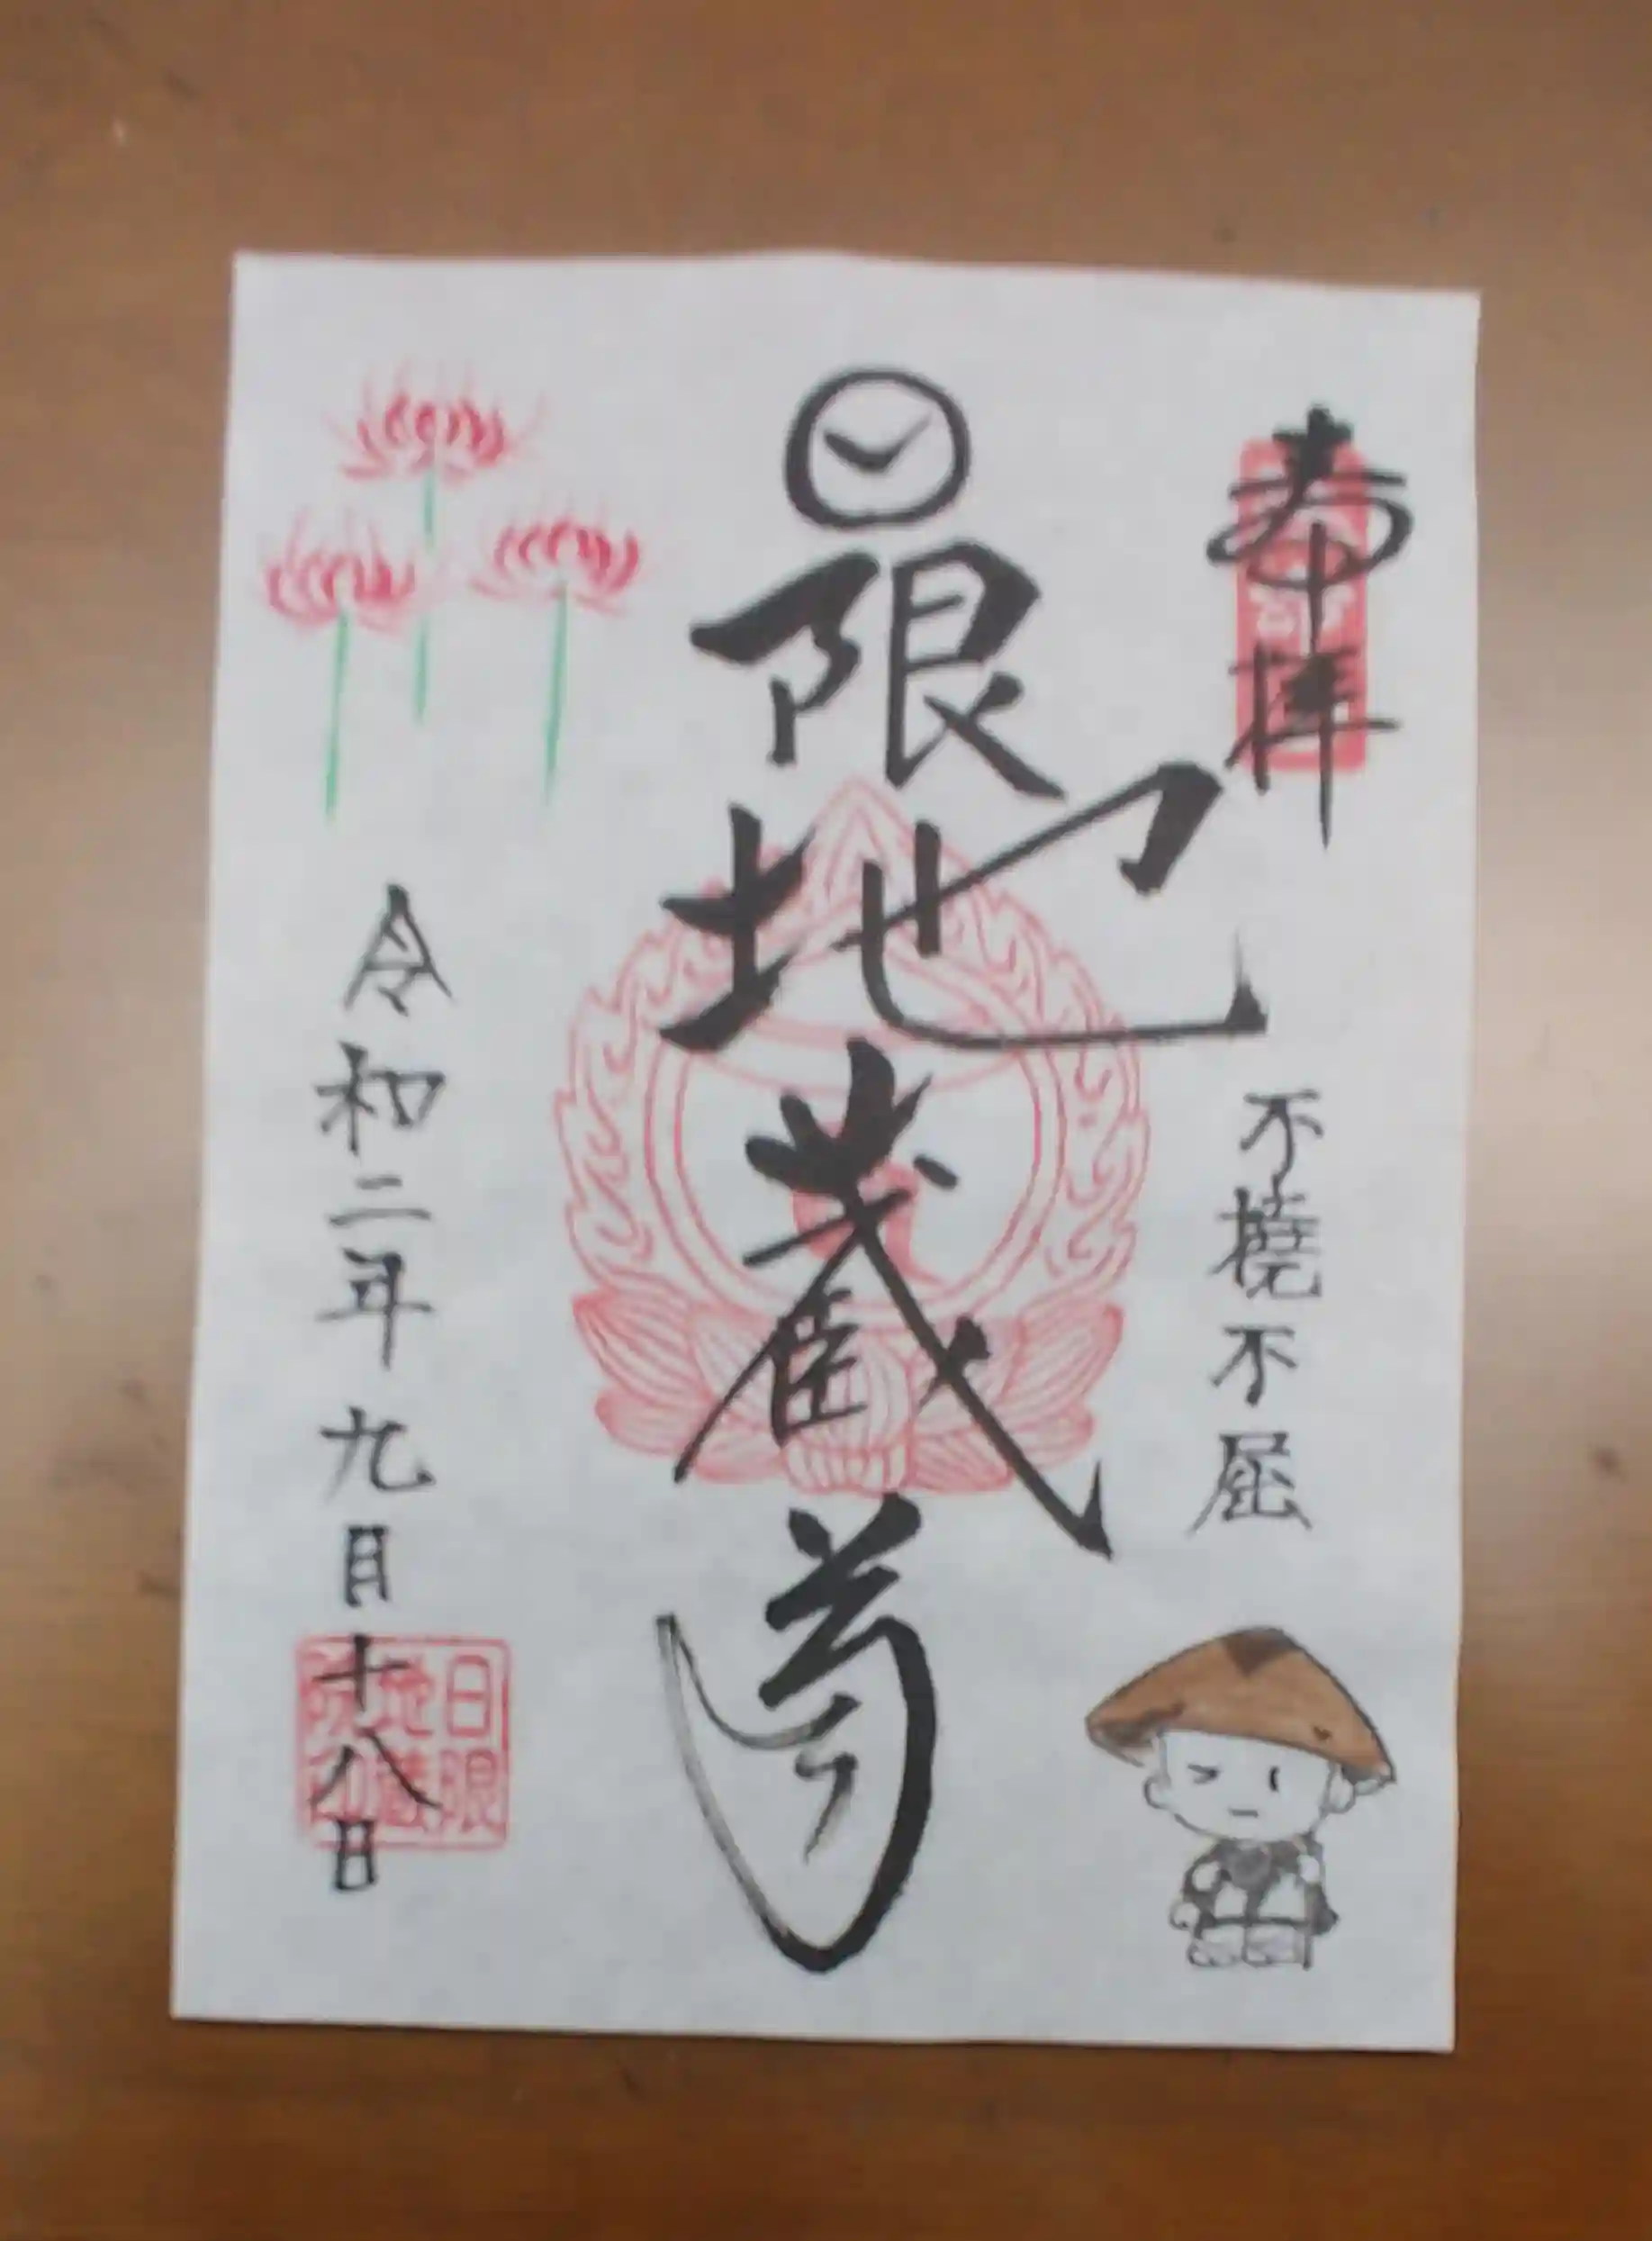 奉拝
不撓不屈
日限地蔵尊
令和二年九月十八日
日限
地蔵